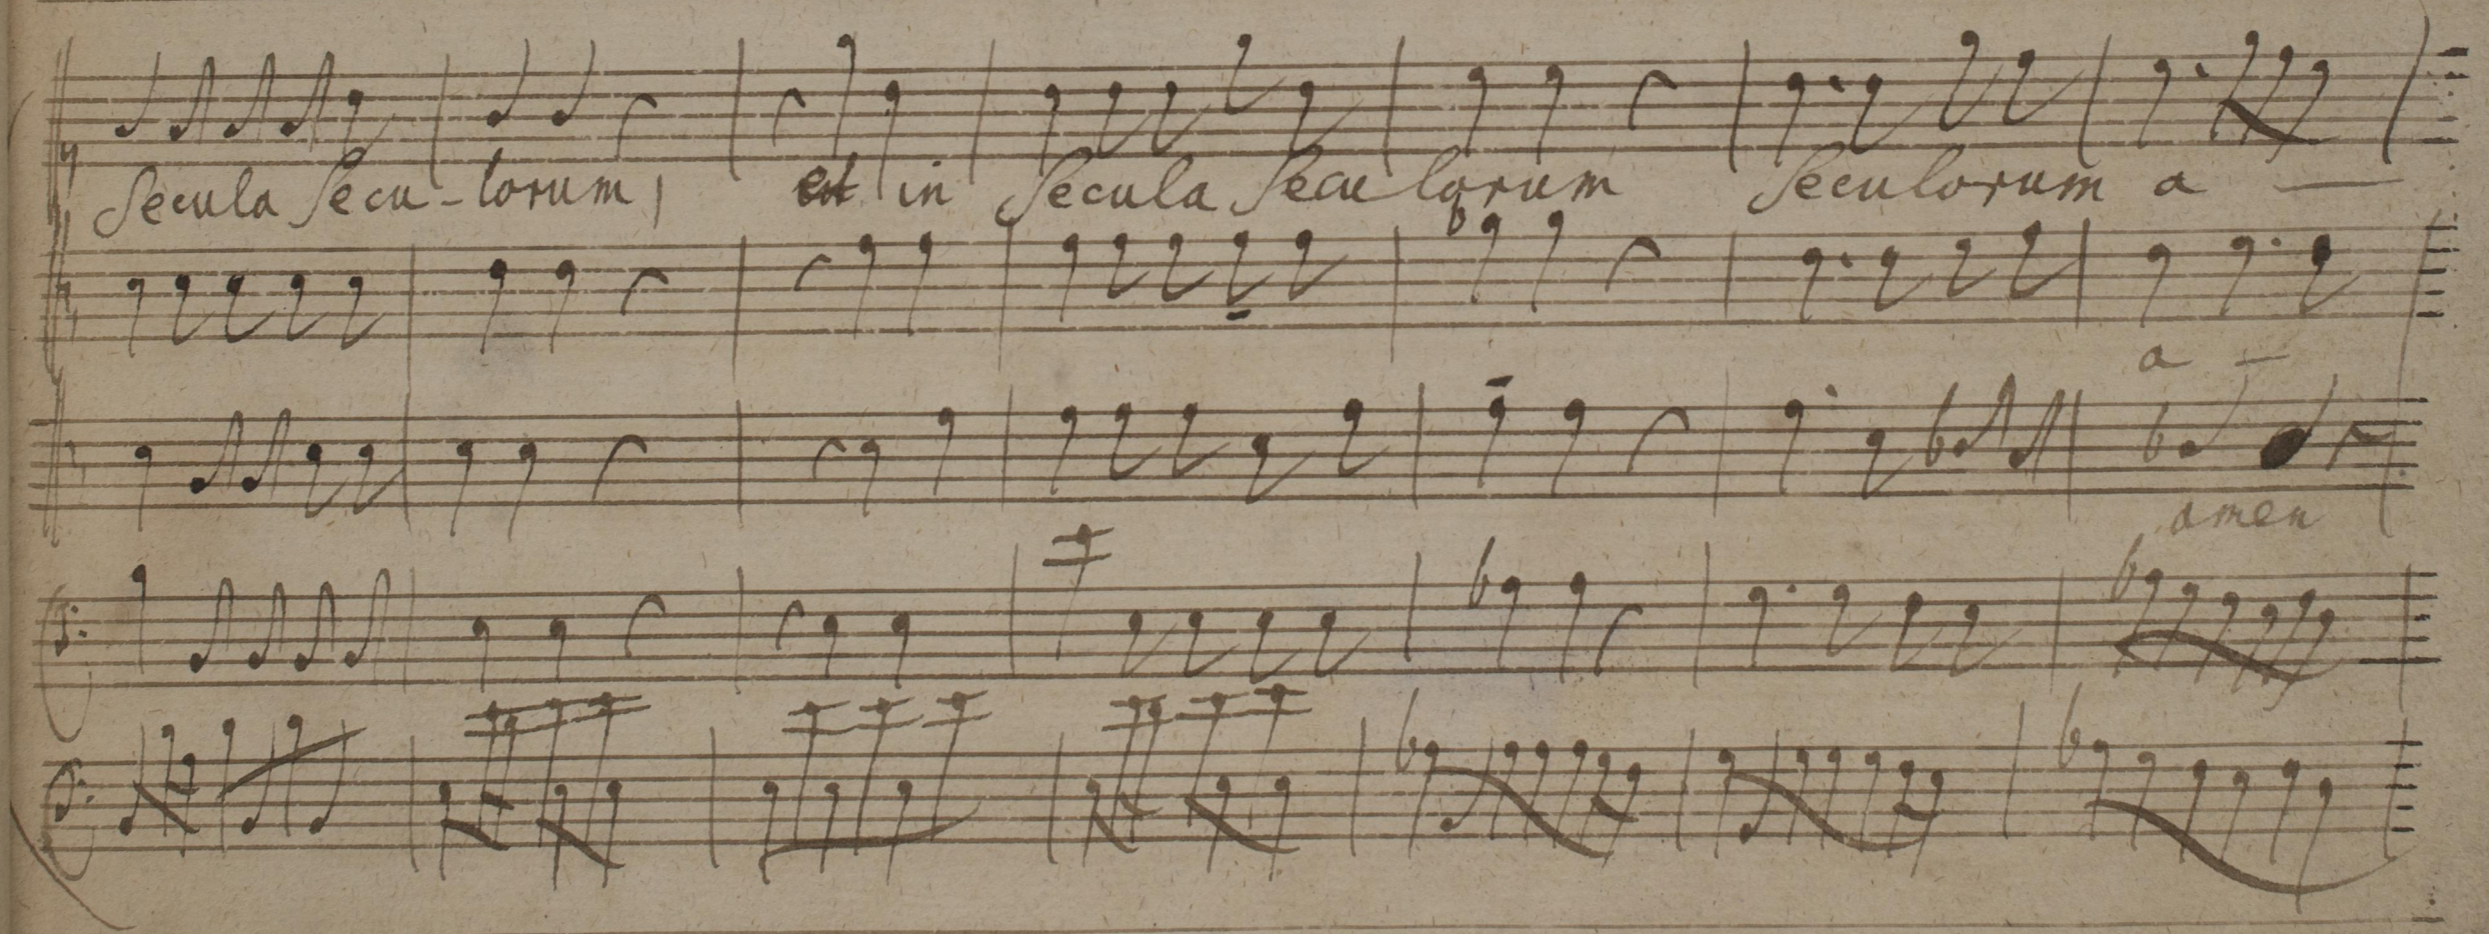 Secula Secu - lorum, et in Secula Secu lorum Seculorum a —
a —
amen